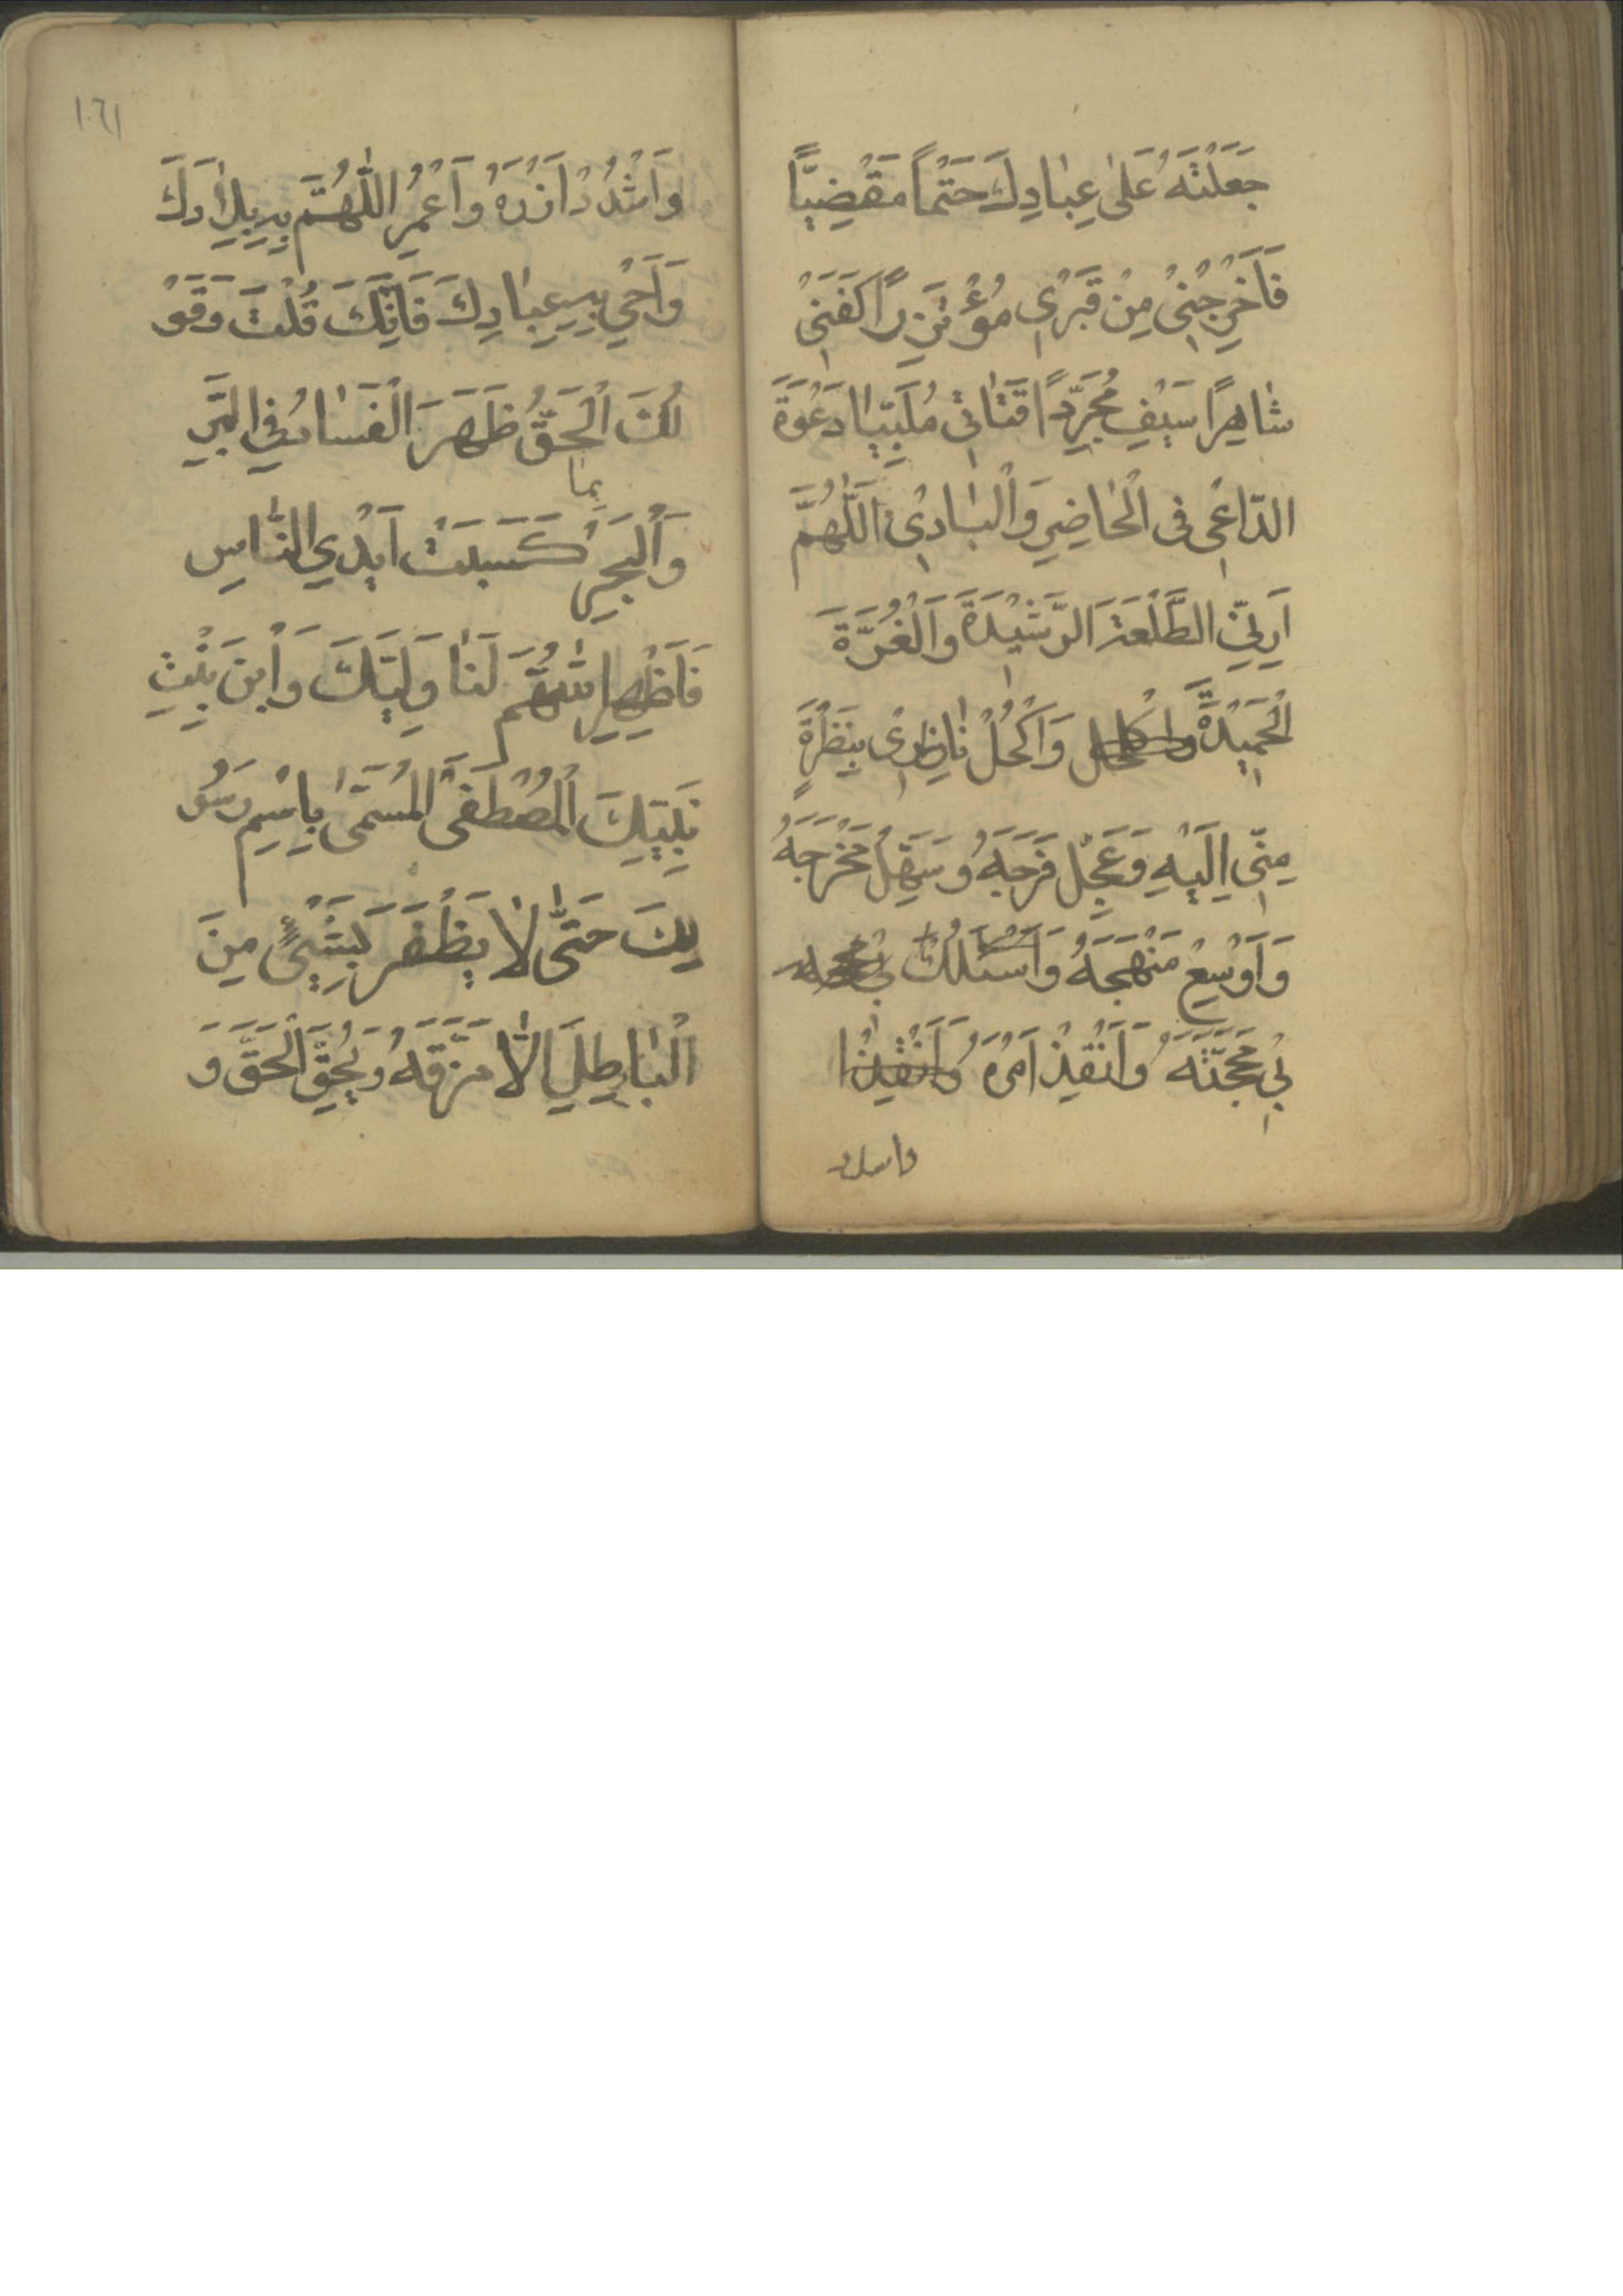 جَعَلْتَهُ عَلٰى عِبٰادِكَ حَتْماً مَقْضِيّاً
فَاَخْرِجْنِىْ مِنْ قَبْرِىْ مُؤْتَزِرًا كَفَنِىْ
شٰاهِرًا سَيْفِ مُجَرِّدًا قَنٰاتِى مُلَبِّيًا دَعْوَةَ
الدّاعِى فِى الْحٰاضِرِ وَالْبٰادِىْ اَللّٰهُمَّ
اَرِنِىْ الطَّلْعَةَ الرَّشِيْدَةَ وَالْغُرَّةَ
الْحَمِيْدَةَ وَاكْحُلْ نٰاظِرِىْ بِنَظْرَةٍ
مِنّى اِلَيْهِ وَعَجِّلْ فَرَجَهُ وَسَهِّلْ مَخْرَجَهُ
وَاَوْسِعْ مَنْهَجَهُ وَاسْلُكْ
بِىْ مَحَجَّتَهُ وَاَنْفِذْ اَمْرَهُ
واشدد
١٦١
وَاشْدُدْ اَزْرَهُ وَاعْمُرِ اللّٰهُمَّ بِهِ بِلاٰدَكَ
وَاَحْيِ بِهِ عِبٰادِكَ فَاِنَّكَ قُلْتَ وَقَوْ
لُكَ الْحَقُّ ظَهَرَ الْفَسٰادُ فِي الْبَرِّ
وَالْبَحْرِ بِمٰا كَسَبَتْ اَيْدِي النّٰاسِ
فَاَظْهِرِ اللّٰهُمَّ لَنٰا وَلِيَّكَ وَابْنَ بِنْتِ
نَبِيِّكَ الْمُصْطَفَى الْمُسَمّٰى بِاسْمِ رَسُو
لِكَ حَتّٰى لاٰ يَظْفَرَ بِشَيْءٍ مِنَ
الْبٰاطِلِ اِلاّٰ مَزَّقَهُ وَيُحِقَّ الْحَقَّ وَ